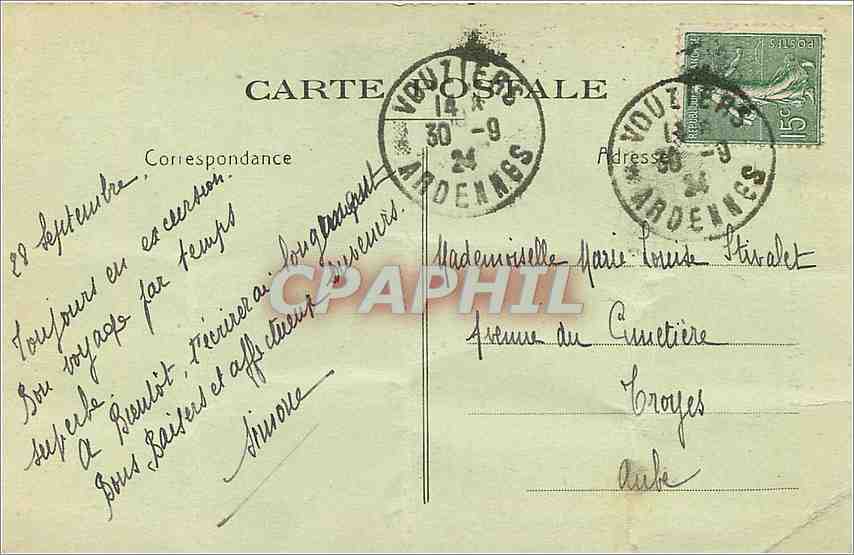 CARTE POSTALE
Correspondance
Adresse
28 Septembre.
Toujours en excursion.
Bon voyage par temps
superbe.
A Bientôt, t'écrirerai longuement
Bons Baisers et affectueux
Simone
VOUZIERS
14
30 -9
24
ARDENNES
VOUZIERS
30 -9
24
ARDENNES
POSTES
15c
Mademoiselle Marie Louise Stivalet
Avenue du Cimetière
Troyes
Aube
CPAPHIL